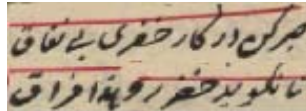 صبر کن در کار خضری بی نفاق
تا نگوید خضر رو هذا فراق